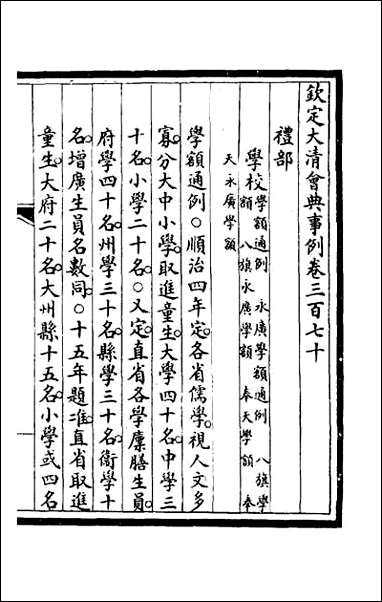 欽定大清會典事例卷三百七十
禮部
學校學額通例 永廣學額通例 八旗學
額 八旗永廣學額 奉天學額 奉
天永廣學額
學額通例○順治四年定各省儒學視人文多
寡分大中小學取進童生大學四十名中學三
十名小學二十名○又定直省各學廩膳生員
府學四十名州學三十名縣學三十名衞學十
名增廣生員名數同○十五年題准直省取進
童生大府二十名大州縣十五名小學或四名